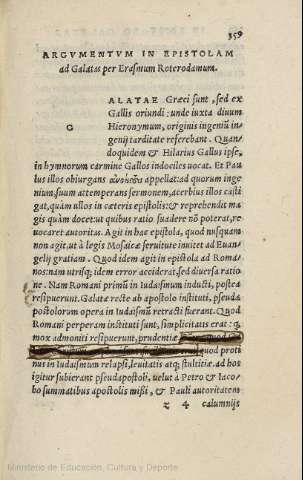 359
ARGVMENTVM IN EPISTOLAM
ad Galatas per Erasmum Roterodamum.
GALATAE Græci sunt, sed ex
Gallis oriundi: unde iuxta diuum
Hieronymum, originis ingeniũ in-
genij tarditate referebant. Quan-
doquidem & Hilarius Gallus ipse,
in hymnorum carmine Gallos indociles uocat. Et Pau
lus illos obiurgans ἀνοήτους appellat: ad quorum inge
nium, suum attemperans sermonem, acerbius illos casti
gat, quàm ullos in cæteris epistolis: & reprehendit ma
gis quàm docet: ut quibus ratio suadere nõ poterat, re
uocaret autoritas. Agit in hac epistola, quod nusquam
non agit, ut à legis Mosaicæ seruitute inuitet ad Euan
gelij gratiam. Quod idem agit in epistola ad Roma-
nos: nam utrisq; idem error acciderat, sed diuersa ratio
ne. Nam Romani primũ in Iudaismum inducti, postea
resipuerunt. Galatæ recte ab apostolo instituti, pseuda
postolorum opera in Iudaismũ retracti fuerant. Quod
Romani perperam instituti sunt, simplicitatis erat: q
mox admoniti resipuerunt, prudentiæ
quod proti
nus in Iudaismum relapsi, leuitatis atq; stultitiæ. ad hos
igitur subierant pseudapostoli, uelut à Petro & Iaco-
bo summatibus apostolis missi, & Pauli autoritatem
z 4 calumnijs
Ministerio de Educación, Cultura y Deporte